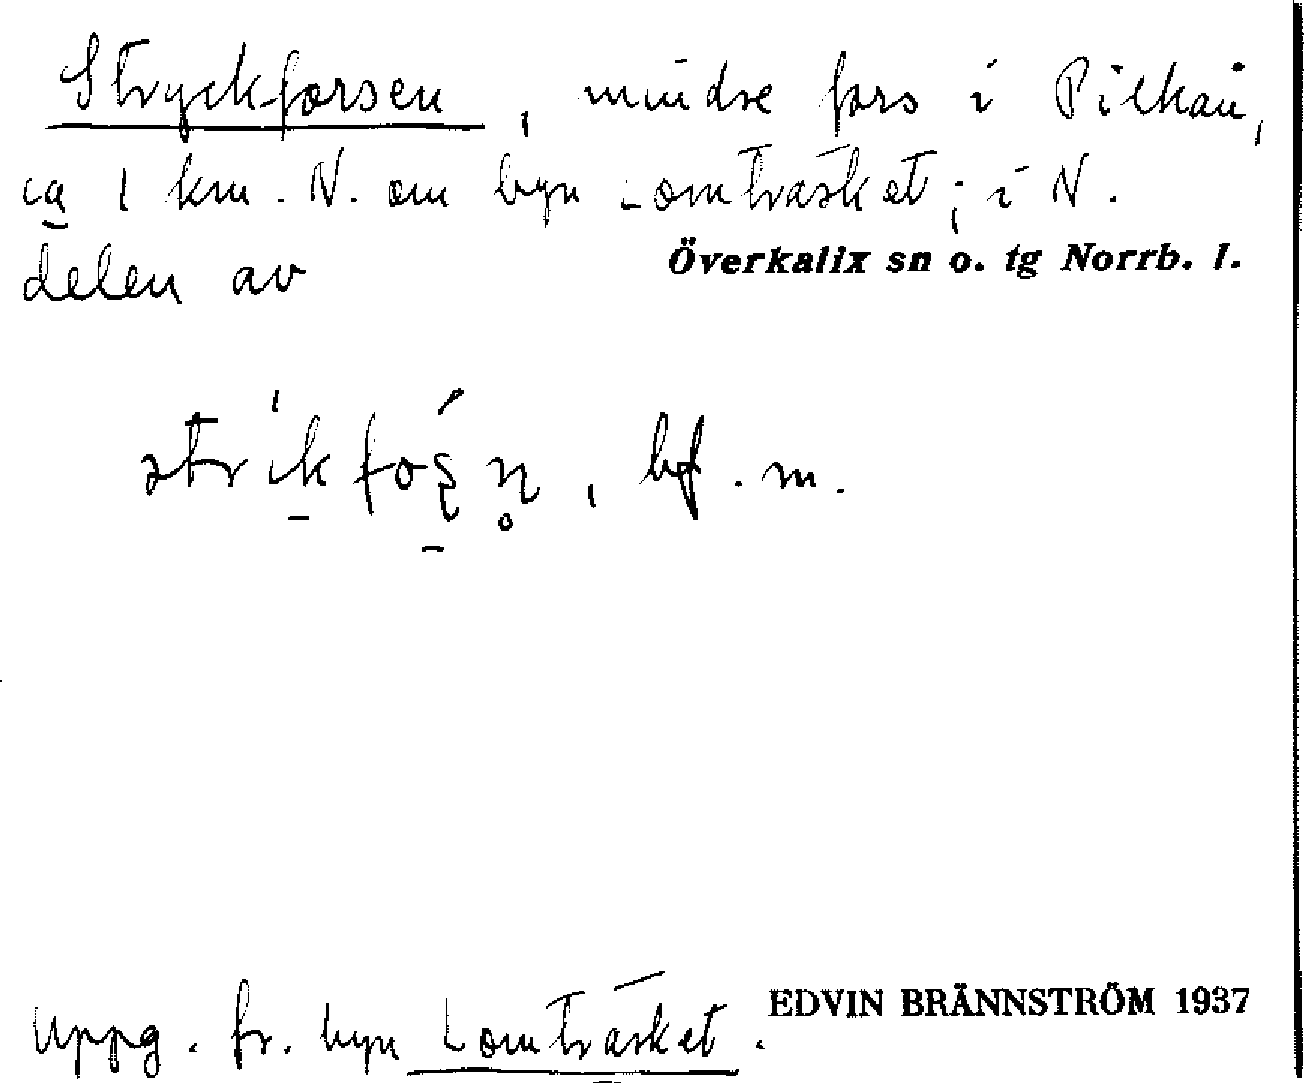 Stryckforsen, mindre fors i Pilkån,
ca 1 km. N. om byn Lomträsket; i N.
delen av Överkalix sn o. tg Norrb. l.
bf. m.
Uppg. fr. byn Lomträsket. EDVIN BRÄNNSTRÖM 1937